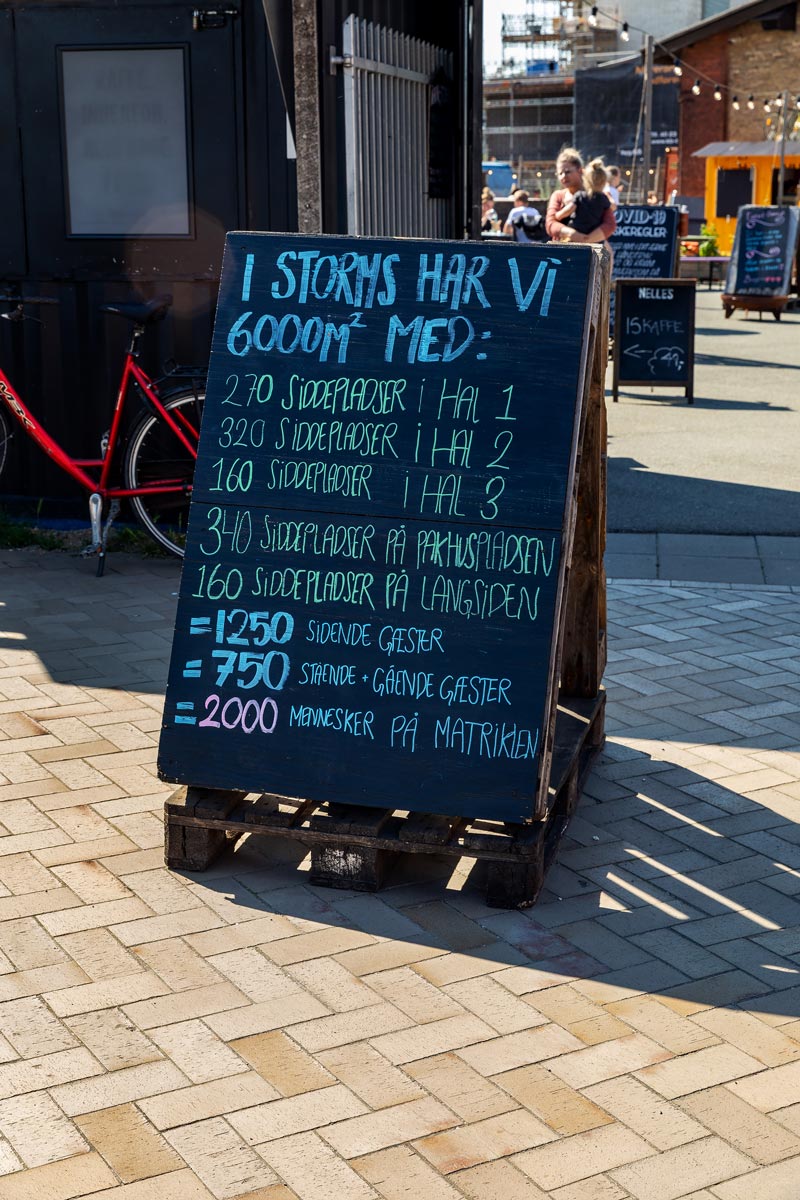 I STORMS HAR Vi
6000M² MED:
270 SIDDEPLADSER i HAL 1
320 SIDDEPLADSER i HAL 2
160 SIDDEPLADSER i HAL 3
340 SIDDEPLADSER PÅ PAKHUSPLADSEN
160 SIDDEPLADSER PÅ LANGSIDEN
=1250 SIDENDE GÆSTER
=750 STÅENDE + GÅENDE GÆSTER
=2000 MENNESKER PÅ MATRIKLEN
NELLES
ISKAFFE